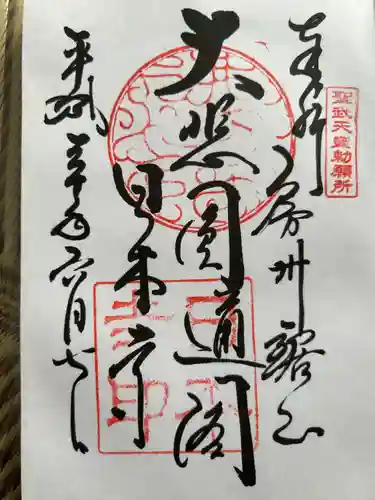 聖武天皇勅願所
奉拝 房州鋸山
大悲圓通閣
日本寺
平成三十年六月七日